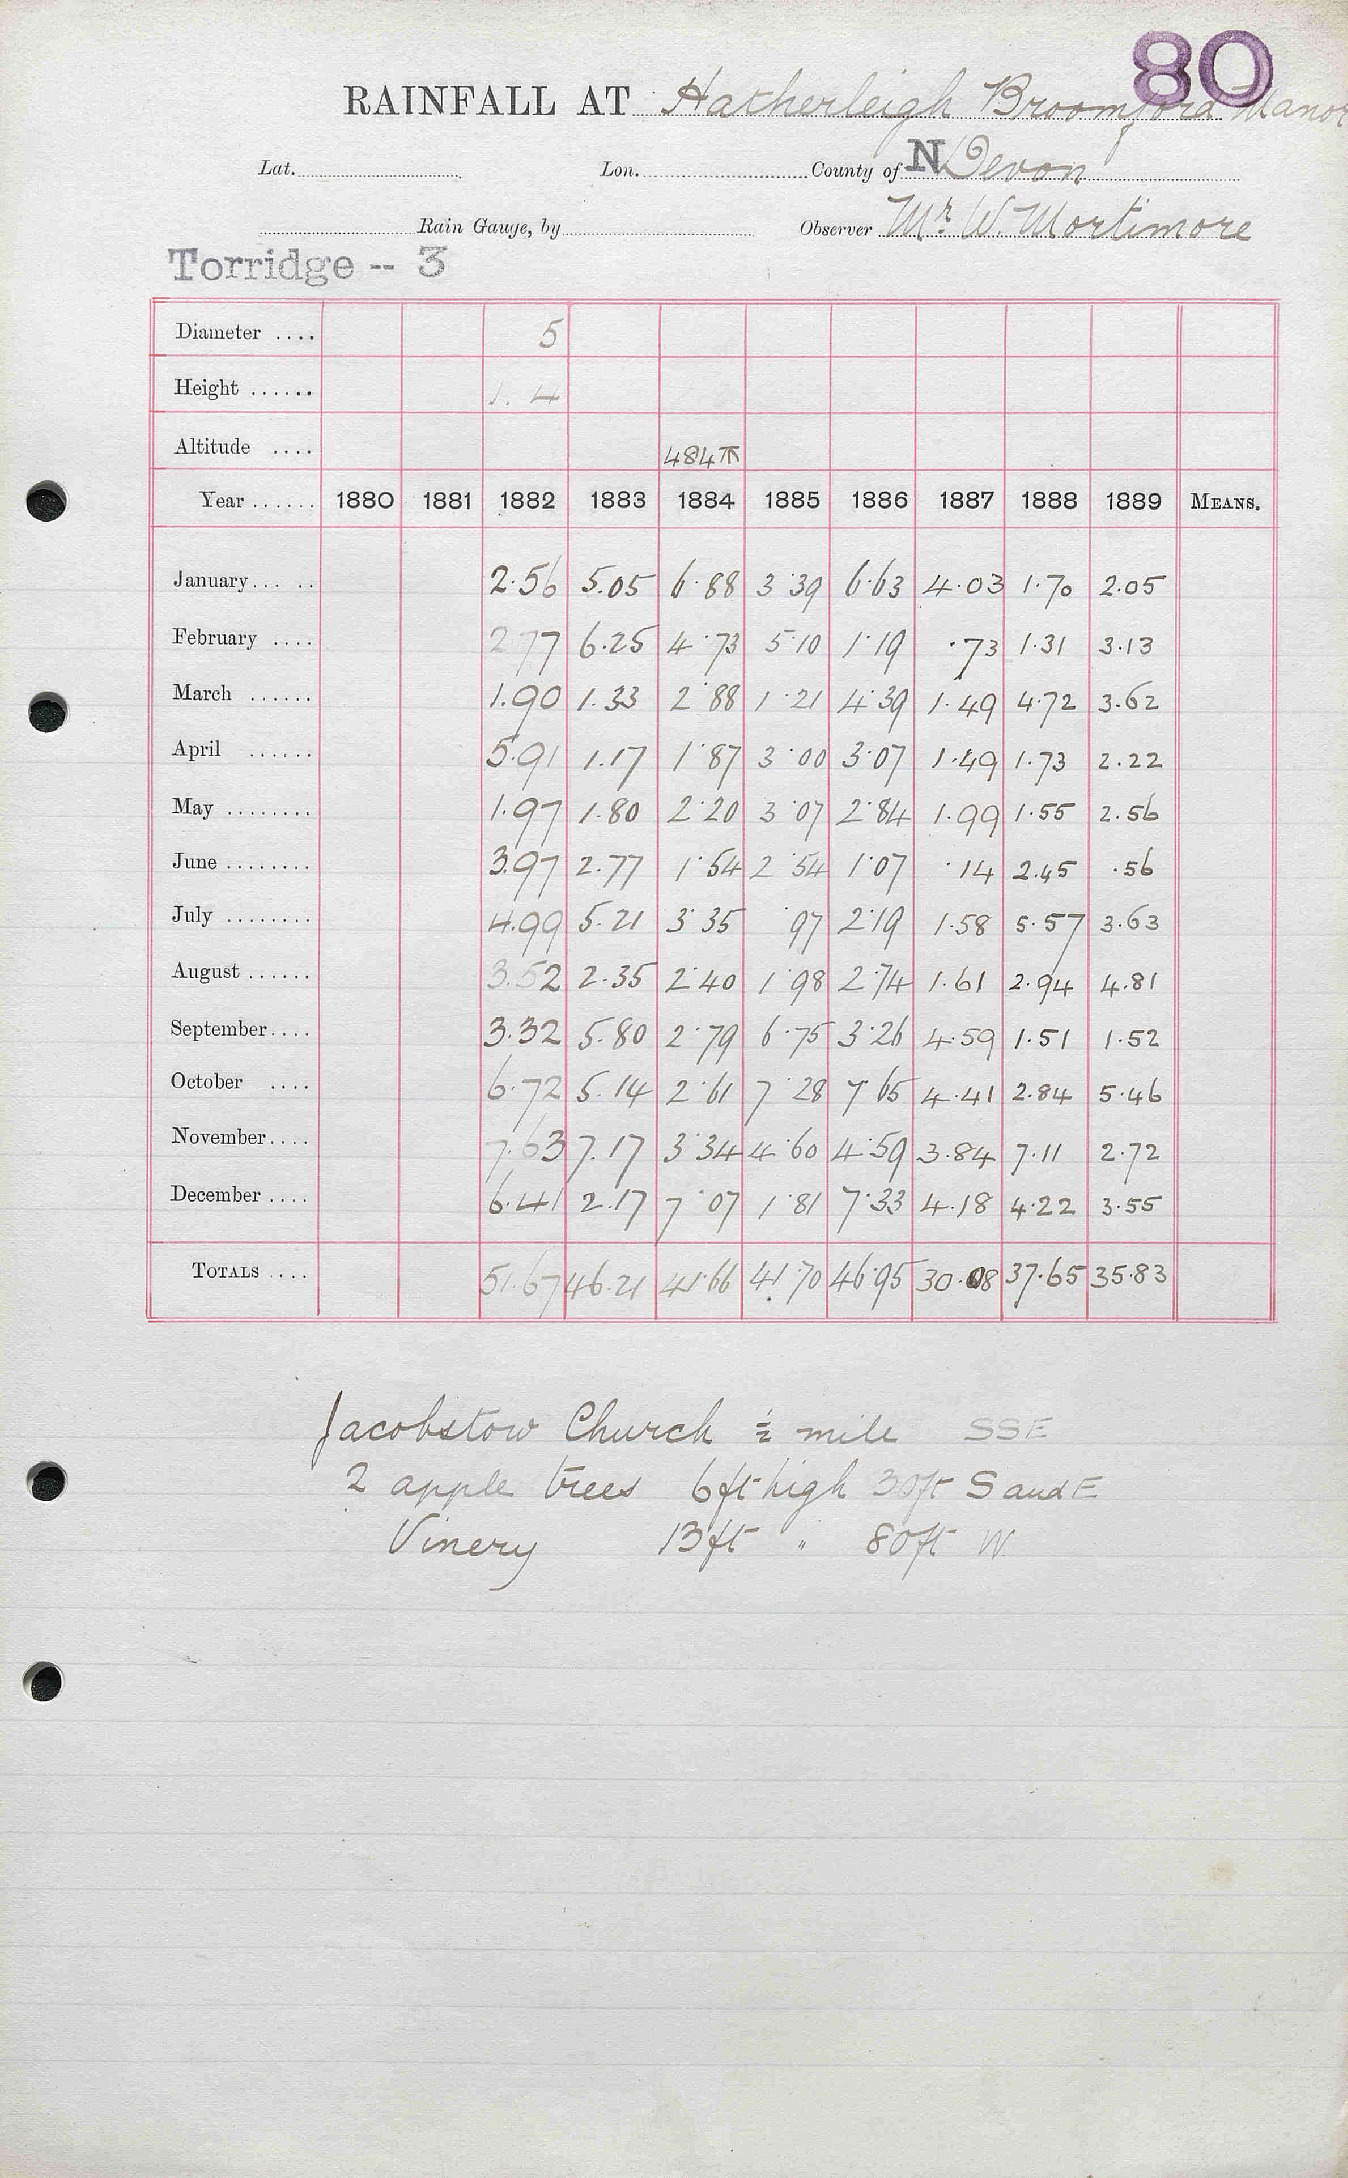 80
RAINFALL AT Hatherleigh Broomford Manor
Lat. Lon. County of N Devon
Rain Gauge, by Observer Mr. W. Mortimore
Torridge -- 3
Diameter .... 5
Height ...... 1. 4
Altitude .... 484
Year ...... 1880 1881 1882 1883 1884 1885 1886 1887 1888 1889 MEANS.
January... .. 2.56 5.05 6.88 3.39 6.63 4.03 1.70 2.05
February .... 2.77 6.25 4.73 5.10 1.19 .73 1.31 3.13
March ...... 1.90 1.33 2.88 1.21 4.39 1.49 4.72 3.62
April ...... 5.91 1.17 1.87 3.00 3.07 1.49 1.73 2.22
May ........ 1.97 1.80 2.20 3.07 2.84 1.99 1.55 2.56
June ........ 3.97 2.77 1.54 2.54 1.07 .14 2.45 .56
July ........ 4.99 5.21 3.35 .97 2.19 1.58 5.57 3.63
August ...... 3.52 2.35 2.40 1.98 2.74 1.61 2.94 4.81
September.... 3.32 5.80 2.79 6.75 3.26 4.59 1.51 1.52
October .... 6.72 5.14 2.61 7.28 7.65 4.41 2.84 5.46
November.... 7.63 7.17 3.34 4.60 4.59 3.84 7.11 2.72
December .... 6.41 2.17 7.07 1.81 7.33 4.18 4.22 3.55
TOTALS .... 51.67 46.21 41.66 41.70 46.95 30.08 37.65 35.83
Jacobstow Church ½ mile SSE
2 apple trees 6ft high 30ft S and E
Vinery 13ft " 80ft W